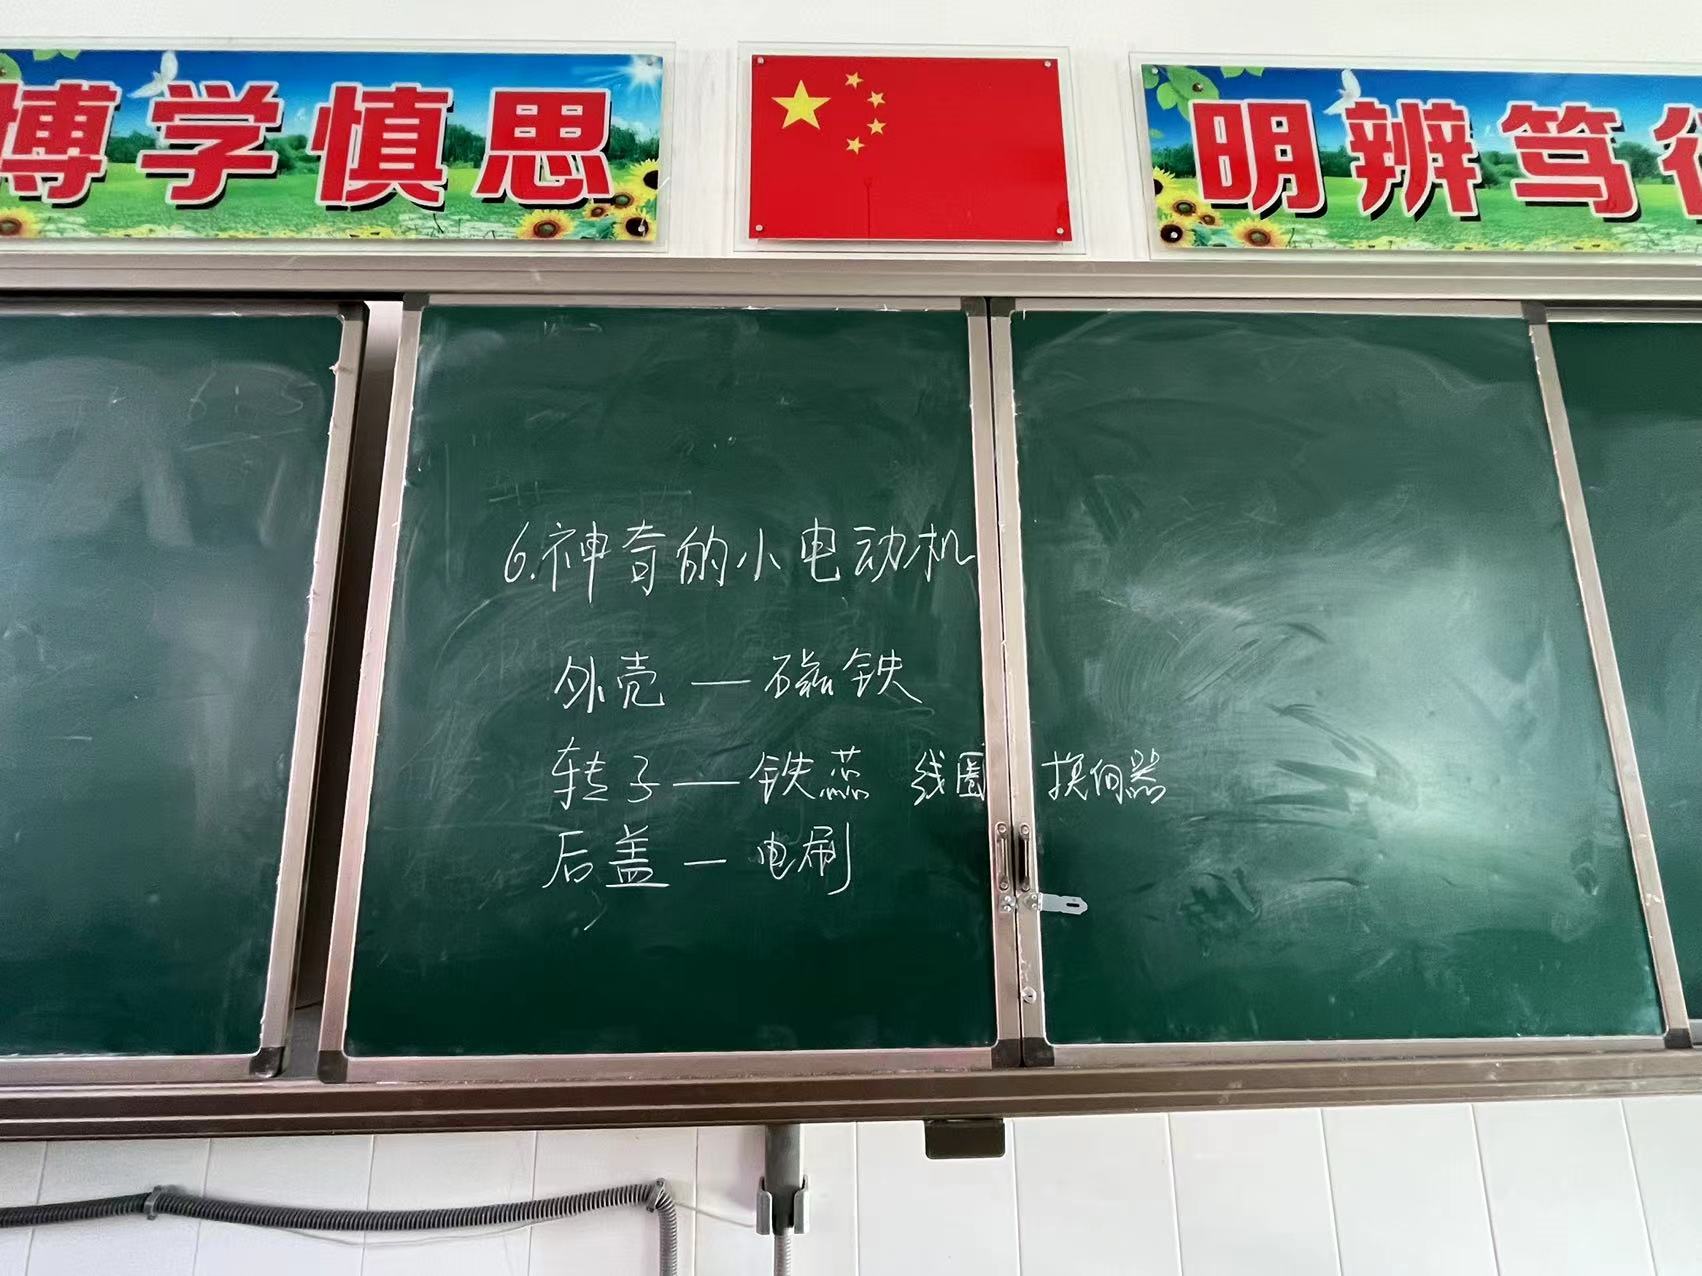 博学慎思
明辨笃行
6.神奇的小电动机
外壳 — 磁铁
转子 — 铁蕊 线圈 换向器
后盖 — 电刷